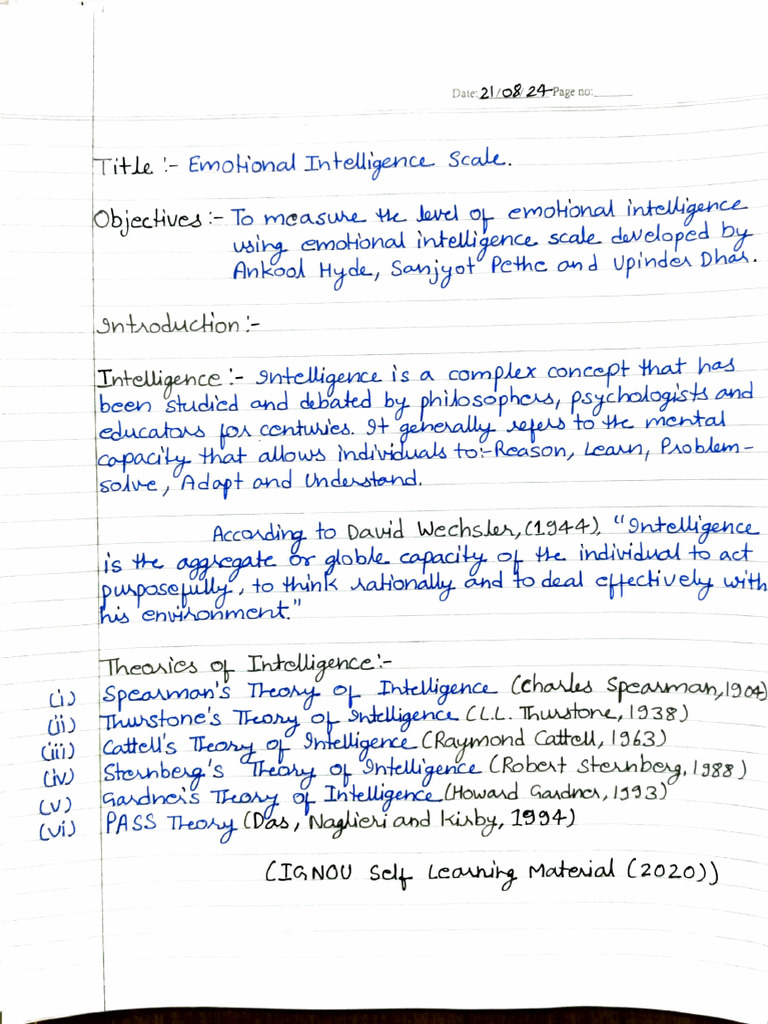 Date: 21/08/24 Page no:
Title :- Emotional Intelligence Scale.
Objectives :- To measure the level of emotional intelligence
using emotional intelligence scale developed by
Ankool Hyde, Sanjyot Pethe and Upinder Dhar.
Introduction :-
Intelligence :- Intelligence is a complex concept that has
been studied and debated by philosophers, psychologists and
educators for centuries. It generally refers to the mental
capacity that allows individuals to:- Reason, Learn, Problem-
solve, Adapt and Understand.
According to David Wechsler, (1944), "Intelligence
is the aggregate or globle capacity of the individual to act
purposefully, to think rationally and to deal effectively with
his environment."
Theories of Intelligence :-
(i) Spearman's Theory of Intelligence (Charles Spearman, 1904)
(ii) Thurstone's Theory of Intelligence (L.L. Thurstone, 1938)
(iii) Cattell's Theory of Intelligence (Raymond Cattell, 1963)
(iv) Sternberg's Theory of Intelligence (Robert Sternberg, 1988)
(v) Gardner's Theory of Intelligence (Howard Gardner, 1993)
(vi) PASS Theory (Das, Naglieri and Kirby, 1994)
(IGNOU Self Learning Material (2020))